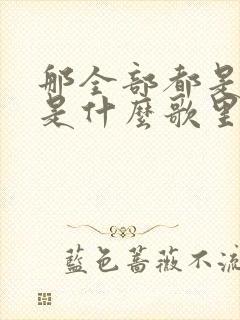 那全部都是
是什麼歌里
藍色薔薇不流